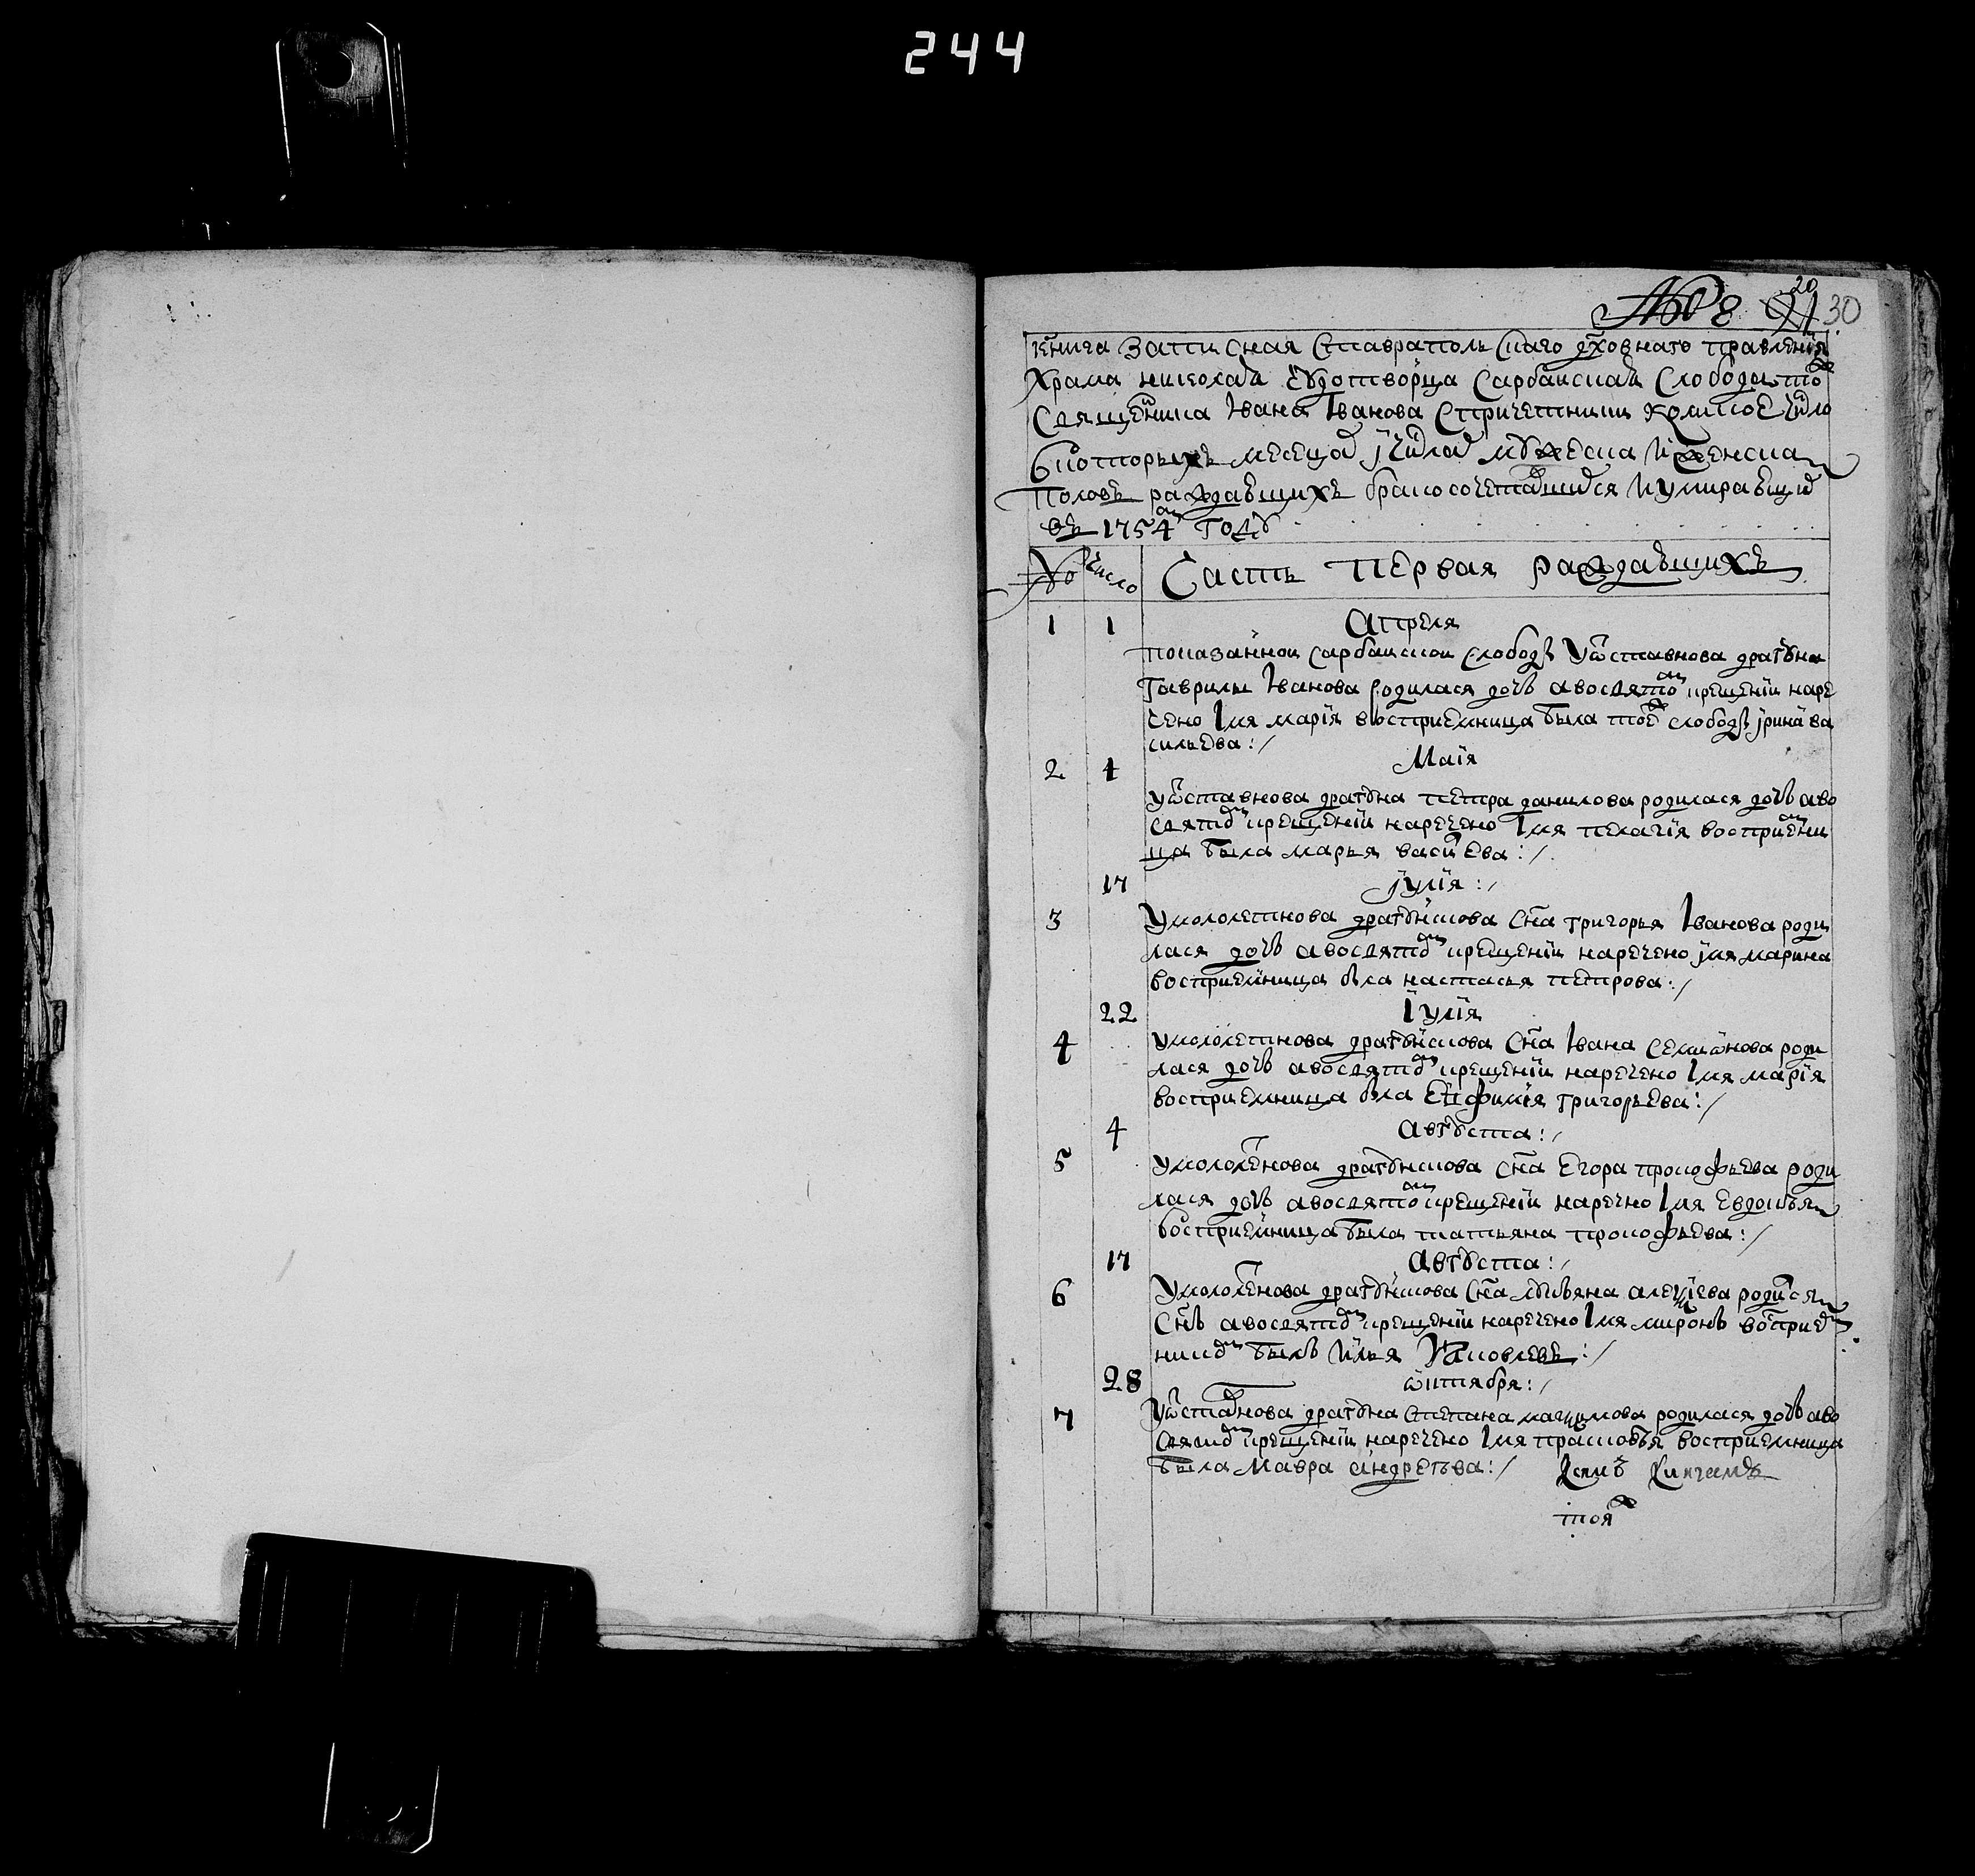 244
№ 8 20 30
Книга записная Ставрапольскаго дховнаго правления
Храма николая Чудотворца Сарбайскай Слободы то
Священика Iвана Iванова Спричетники коликое число
вкоторыхъ месецах и числах мужеска и женска
половъ раждавшихъ бракосочетавшихся и умиравших
въ 1754м годѣ
№ число Часть первая раждавшихъ
1 1 Апреля
показанной сарбайской слободы Уѿставнова драгуна
Гаврилы Iванова родилася дочь авосвятом крещениі наре
чено Iмя мария восприемница была тоеж слободы iрина ва
сильева :/
2 4 Маiя
уѿставнова драгуна петра данилова родилася дочь аво
святом крещениі наречено Iмя пелагiя восприемни
ца была марья васиева :/
17 iулiя :/
3 Умолоletнова драгунскова сна григорья Iванова роди
лася дочь авосвятом крещениі наречено iмя марина
восприемница бла настасья петрова :/
22 Iулiя
4 умололетнова драгунскова сна Iвана семионова роди
лася дочь авосвятом крещениі наречено Iмя марiя
восприемница бла Ефимiя григорьева :/
4 Августа :/
5 умололенова драгунскова сна Егора прокофьева роди
лася дочь авосвятом крещениі наречно Iмя Евдокья
восприемница была татьяна прокофьева :/
17 Августа :/
6 Умололенова драгунскова сна алексiева родися
Снъ авосвятом крещениі наречено Iмя миронъ восприем
ником былъ илья Яковлевъ :/
28 ѿктября :/
7 Уѿставнова драгуна Степана максимова родилася дочь аво
святом крещениі наречено Iмя прасковья восприемница
была Мавра андреева :/
тояж